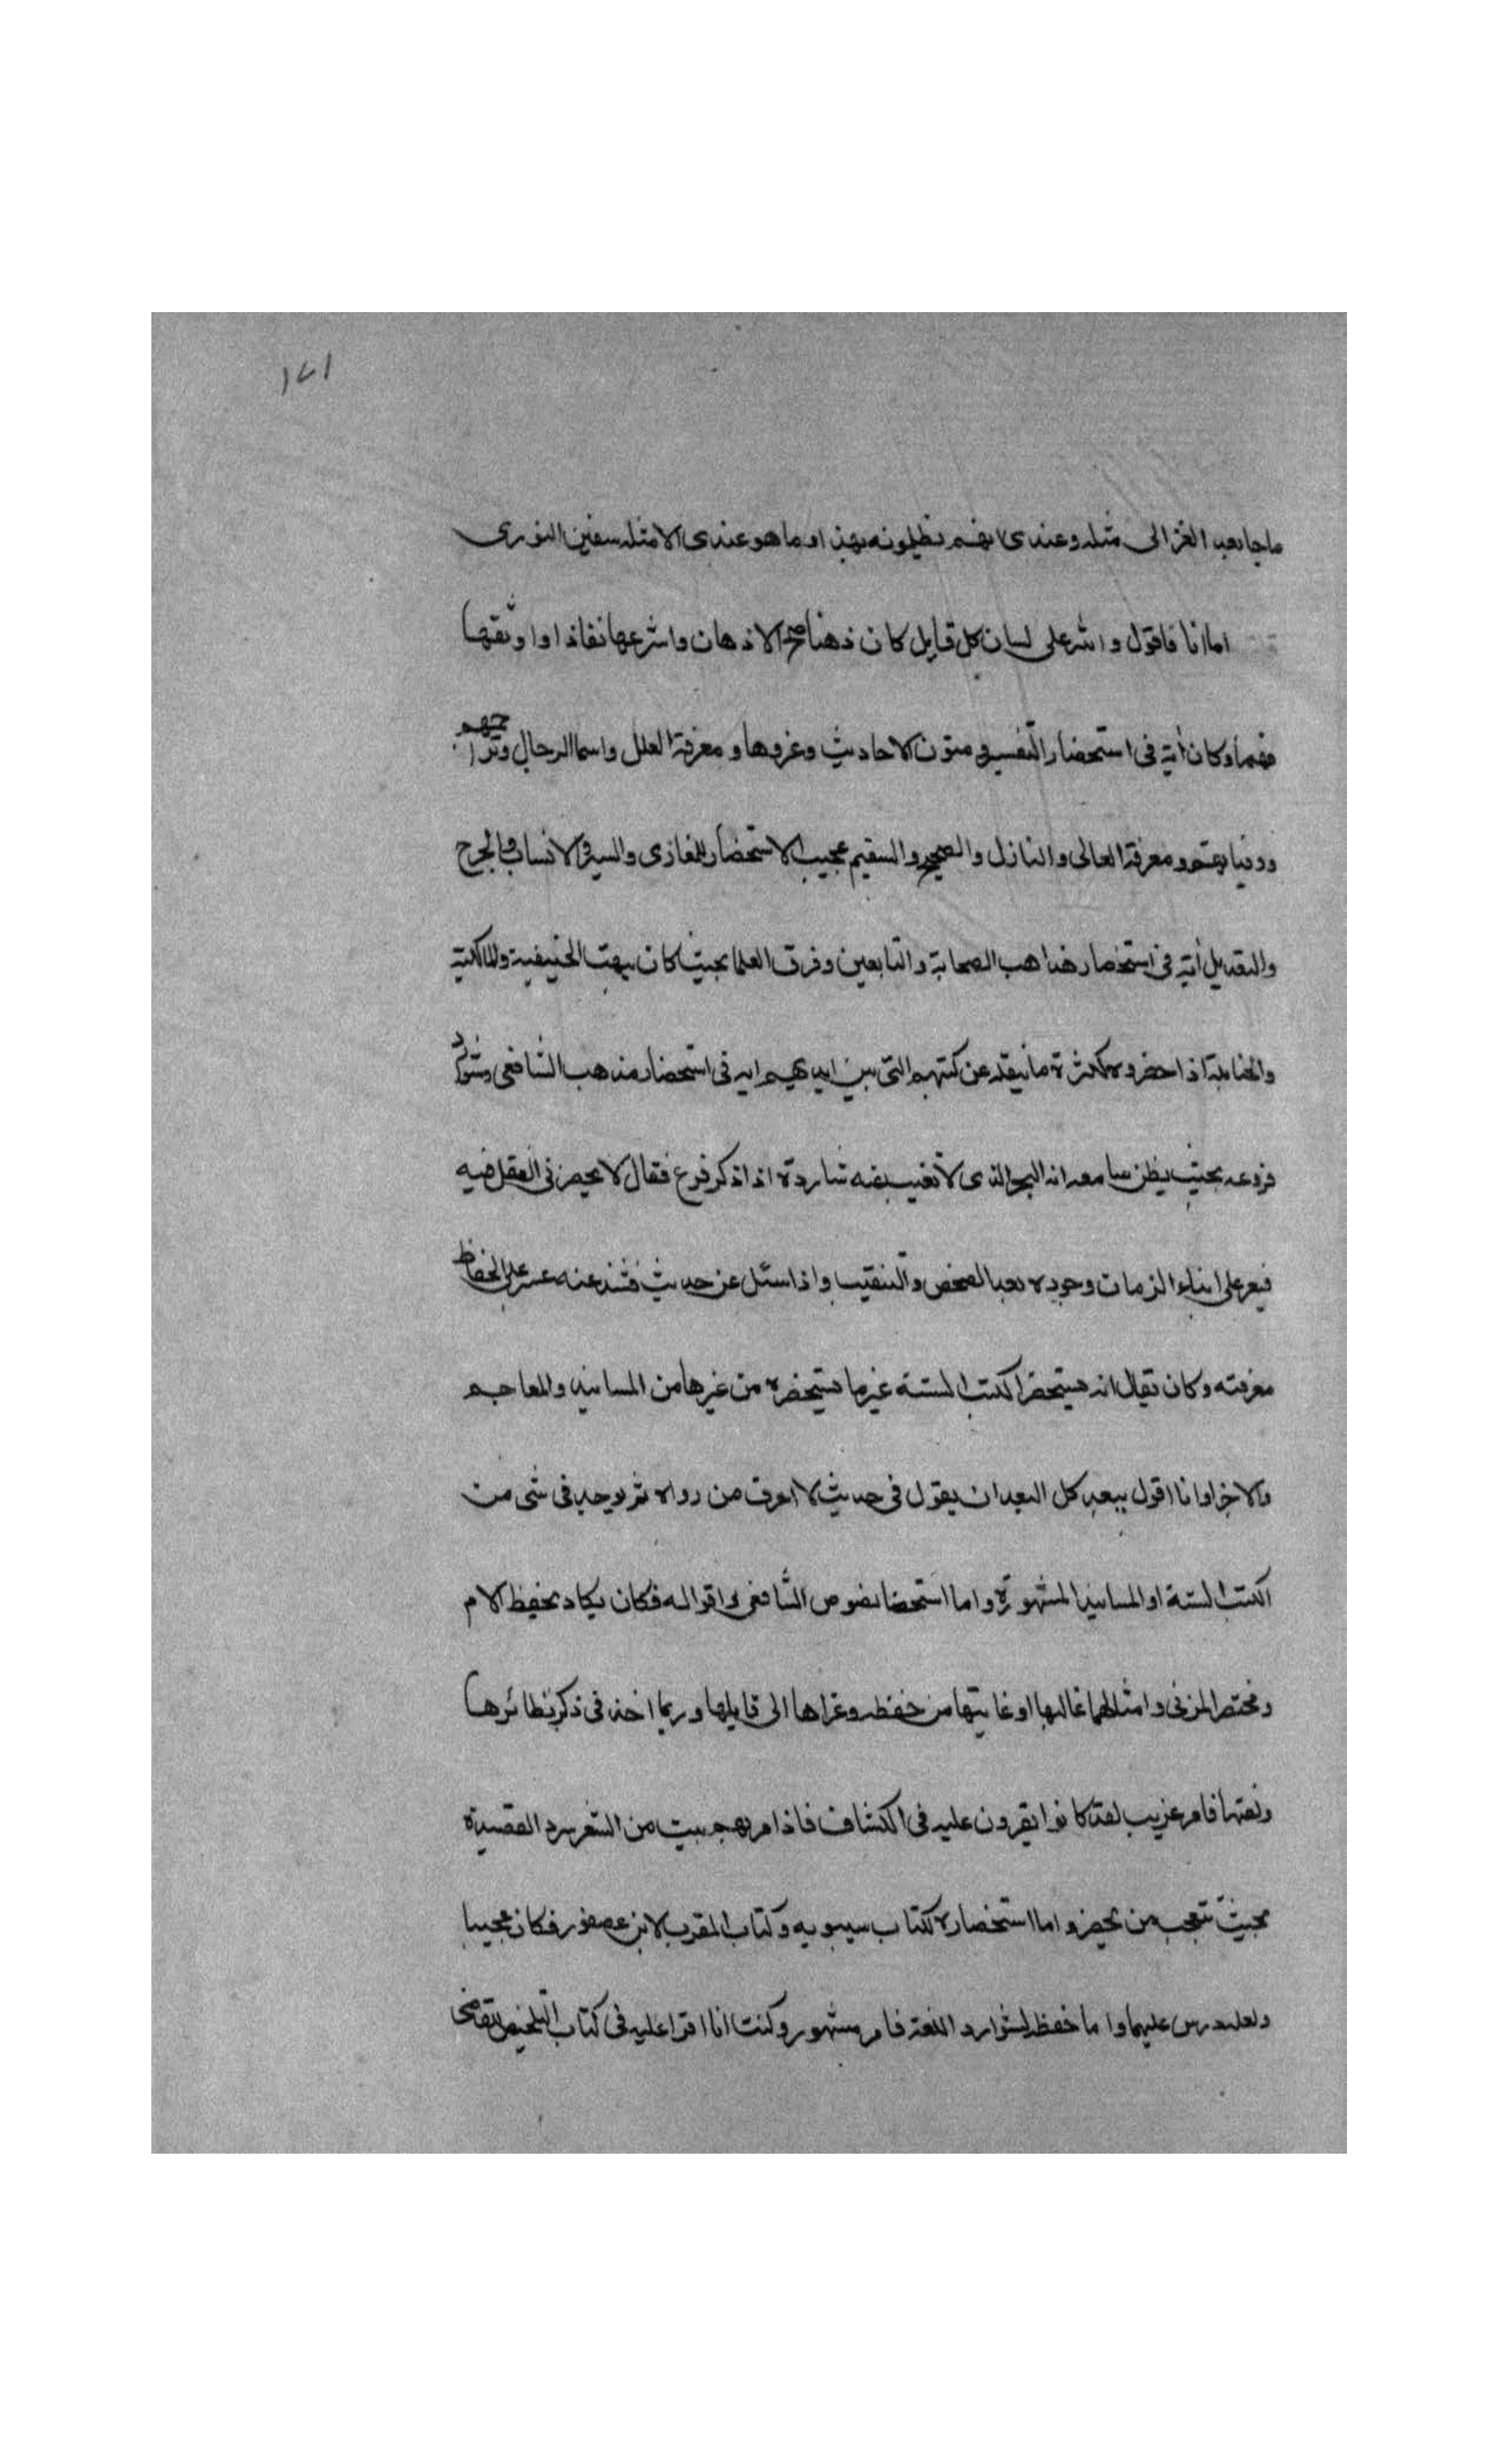 ١٧١
ما جا بعد الغزالى مثله وعندى انهم يظلمونه بهذا وما هو عندى الا مثل سفين الثورى
اما انا فاقول والله على لسان كل قايل كان ذهنا صح الاذهان واسرعها نفاذا واوثقها
فهما وكان آية فى استحضار التفسير ومتون الاحاديث وعزوها ومعرفة العلل واسما الرجال وتراجمهم
ووفياتهم ومعرفة العالى والنازل والصحيح والسقيم عجيب الاستحضار للمغازى والسير والانساب والجرح
والتعديل آية فى استحضار مذاهب الصحابة والتابعين وفرق العلما بحيث كان يبهت الحنيفية والمالكية
والحنابلة اذا حضروه لكثرة ما ينقله عن كتبهم التى بين ايديهم ايه فى استحضار مذهب الشافعى وشوارد
فروعه بحيث يظن سامعه انه البحر الذى لا تغيب عنه شاردة اذا ذكر فرع فقال لا يحضرنى النقل فيه
فيعز على ابناء الزمان وجوده بعد الفحص والتنقيب واذا سئل عن حديث فشذ عنه عسر على الحفاظ
معرفته وكان يقال انه يستحضر الكتب الستة غير ما يستحضره من غيرها من المسانيد والمعاجم
والاجزا وانا اقول يبعد كل البعد ان يقول فى حديث لا اعرف من رواه ثم يوجد فى شى من
الكتب الستة او المسانيد المشهورة واما استحضار نصوص الشافعى واقواله فكان يكاد يحفظ الام
ومختصر المزنى وامثالهما غالبها او غايتها من حفظ وعزاها الى قايلها وربما اخذ فى ذكر نظائرها
ولغتها فامر غريب لقد كانوا يقرون عليه فى الكشاف فاذا مر بهم بيت من الشعر سرد القصيدة
بحيث تتعجب من يحضر واما استحضاره لكتاب سيبويه وكتاب المقرب لابن عصفور فكان عجيبا
ولعله درس عليهما واما حفظه لشوارد اللغة فامر مشهور وكنت انا اقرا عليه فى كتاب التلخيص للقاضى